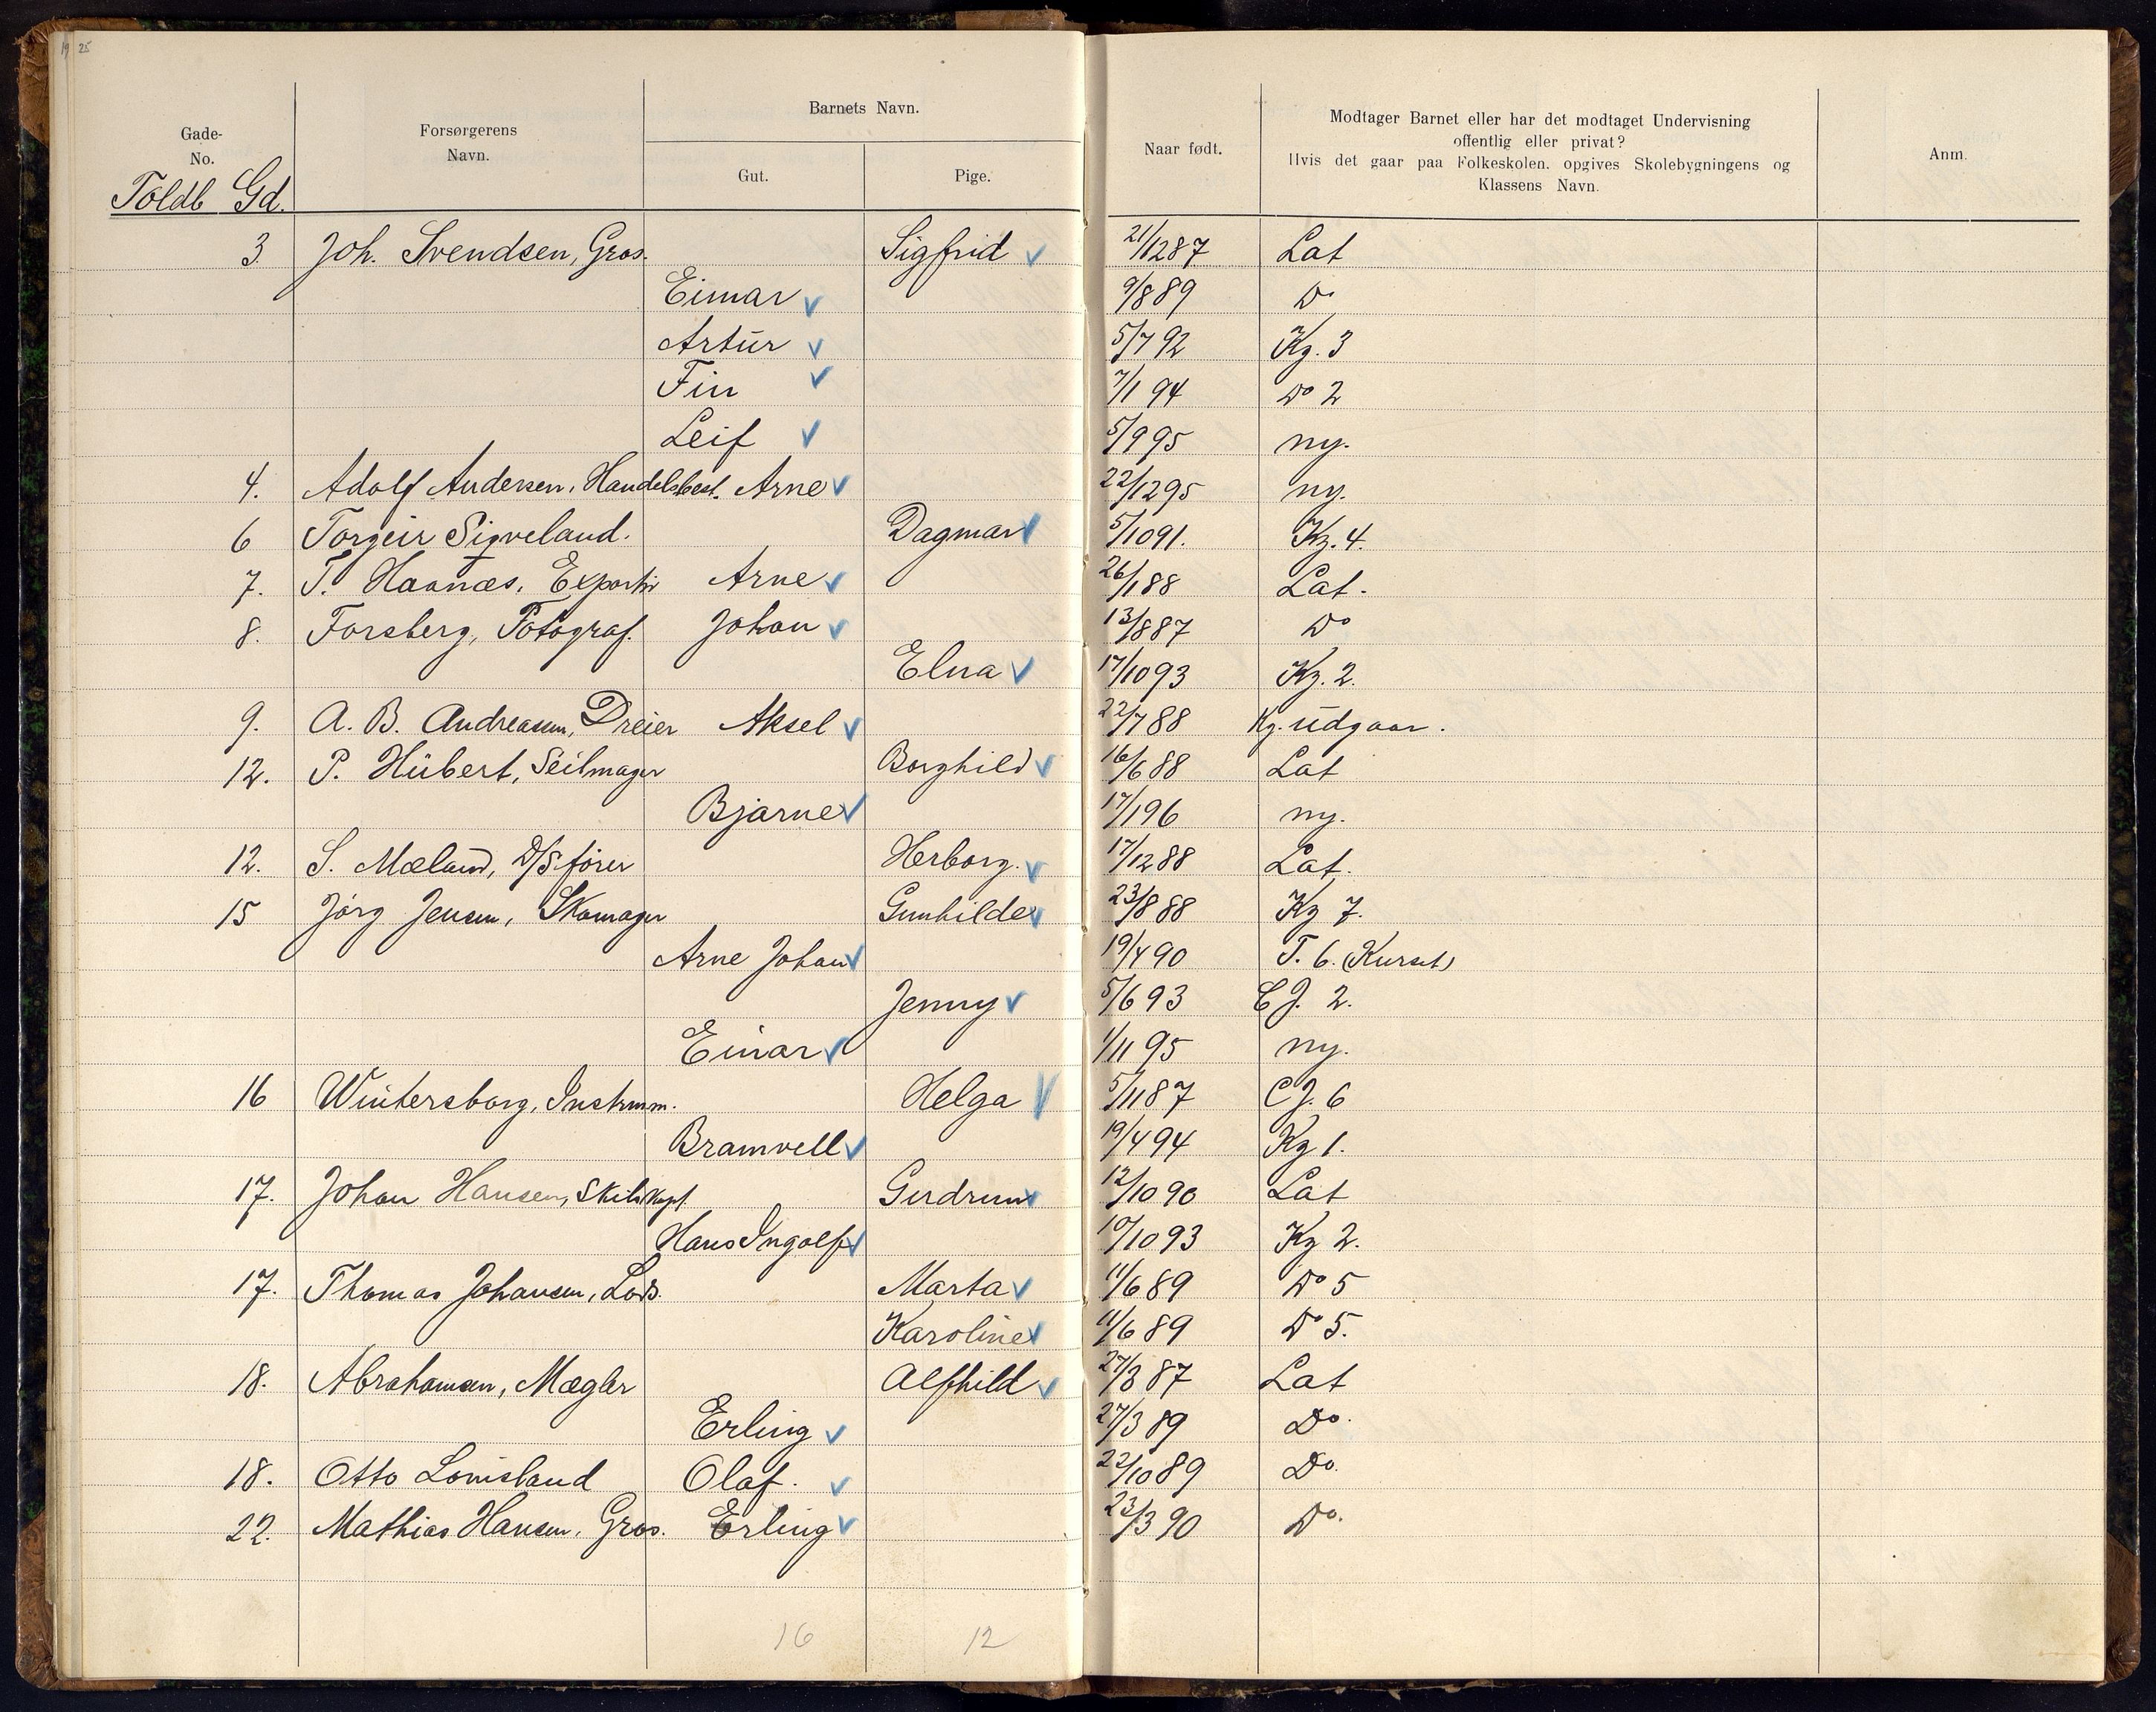 19 25
Gade-No. Forsørgerens Navn. Barnets Navn. Gut. Pige. Naar født. Modtager Barnet eller har det modtaget Undervisning offentlig eller privat? Hvis det gaar paa Folkeskolen. opgives Skolebygningens og Klassens Navn. Anm.
Toldb Gd.
3 Joh. Svendsen, Gros. Sigfrid 21/12 87 Lat
Eimar 9/8 89 Do
Artur 5/7 92 Kg. 3
Fin 7/1 94 Do 2
Leif 5/9 95 ny.
4. Adolf Andersen, Handelsbest. Arne 22/12 95 ny.
6 Torgeir Sigveland. Dagmar 5/10 91. Kg. 4.
7. T. Haanæs, Exportør Arne 26/1 88 Lat.
8. Forsberg, Fotograf. Johan 13/8 87 Do
Elna 17/10 93 Kg. 2.
9. A. B. Andreassen, Dreier Aksel 22/7 88 Kg. udgaar.
12. P. Hübert, Seilmager Borghild 16/6 88 Lat
Bjarne 17/1 96 ny.
12. S. Mæland, D/S fører Herborg. 17/12 88 Lat.
15 Jörg Jensen, Skomager Gunhilde 23/8 88 Kg 7.
Arne Johan 19/4 90 T. 6. (Kurset)
Jenny 5/6 93 CJ. 2.
Einar 1/11 95 ny.
16 Wintersborg, Instrumm. Helga 5/11 87 CJ. 6
Bramvell 19/4 94 Kg 1.
17. Johan Hansen, Skibskapt. Gudrun 12/10 90 Lat
Hans Ingolf 10/10 93 Kg 2.
17. Thomas Johansen, Lods. Marta 11/6 89 Do 5
Karoline 11/6 89 Do 5.
18. Abrahamsen, Mægler Alfhild 27/3 87 Lat
Erling 27/3 89 Do.
18. Otto Lomsland Olaf. 22/10 89 Do.
22. Mathias Hansen, Gros. Erling 23/3 90 Do.
16 12